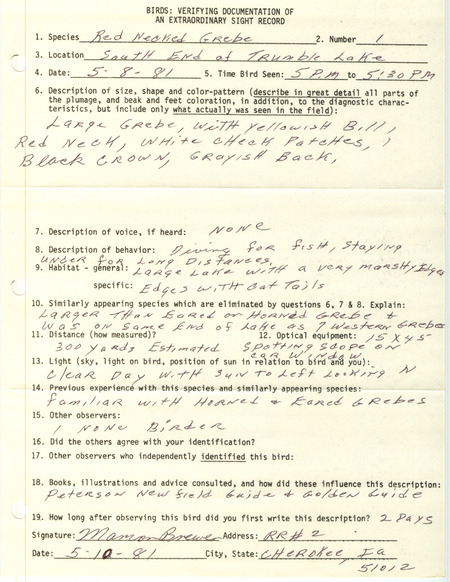 BIRDS: VERIFYING DOCUMENTATION OF
AN EXTRAORDINARY SIGHT RECORD
1. Species Red Necked Grebe 2. Number 1
3. Location South End of Trumble Lake
4. Date: 5-8-81 5. Time Bird Seen: 5 PM to 5:30 PM
6. Description of size, shape and color-pattern (describe in great detail all parts of
the plumage, and beak and feet coloration, in addition, to the diagnostic charac-
teristics, but include only what actually was seen in the field):
Large Grebe, with yellowish Bill,
Red Neck, White Cheek Patches,
Black Crown, Grayish Back,
7. Description of voice, if heard: None
8. Description of behavior: Diving for fish, staying
under for Long Distances,
9. Habitat - general: Large Lake with a very marshy Edges
specific: Edges with Cat Tails
10. Similarly appearing species which are eliminated by questions 6, 7 & 8. Explain:
Larger than Eared or Horned Grebe &
was on same End of Lake as 7 Western Grebes
11. Distance (how measured)? 12. Optical equipment: 15 X 45
300 yards Estimated Spotting Scope on
car window
13. Light (sky, light on bird, position of sun in relation to bird and you):
Clear Day with Sun to Left Looking N
14. Previous experience with this species and similarly appearing species:
Familiar with Horned & Eared Grebes
15. Other observers:
1 None Birder
16. Did the others agree with your identification?
17. Other observers who independently identified this bird:
18. Books, illustrations and advice consulted, and how did these influence this description:
Peterson New Field Guide & Golden Guide
19. How long after observing this bird did you first write this description? 2 Days
Signature: Marion Brewer Address: RR# 2
Date: 5-10-81 City, State: Cherokee, Ia
51012